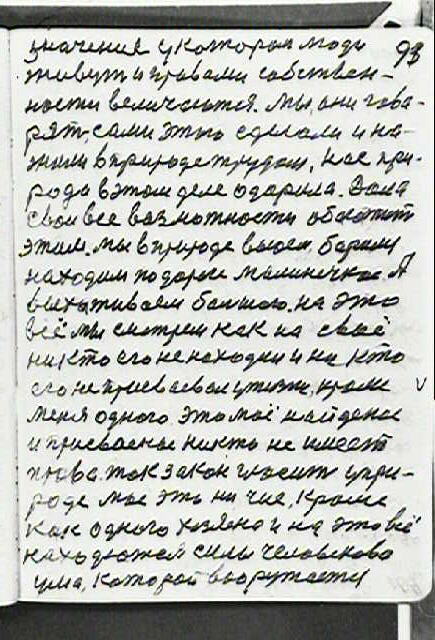 значения у котором люди 93
живут и правами собствен-
ности величаются. Мы, они гова-
рят, сами это сделали и на-
жили в природе трудом, нас при-
рода в этом деле одарила. Дала
свои все возможности обогатит
этим. Мы в природе
находим по дороге маленичкое. А
выхаживаем большое. на это
всё мы смотрем как на своё
никто его не находил и ни кто
его не присваевал у жизни, кроме
меня одного. Это моё найденое
и присваеное никто не имеет
права. так закон гласит у при-
роде мое это ни чие, кроме
как одного хозяено и на это всё
находются силы человеково
ума, которой вооружается